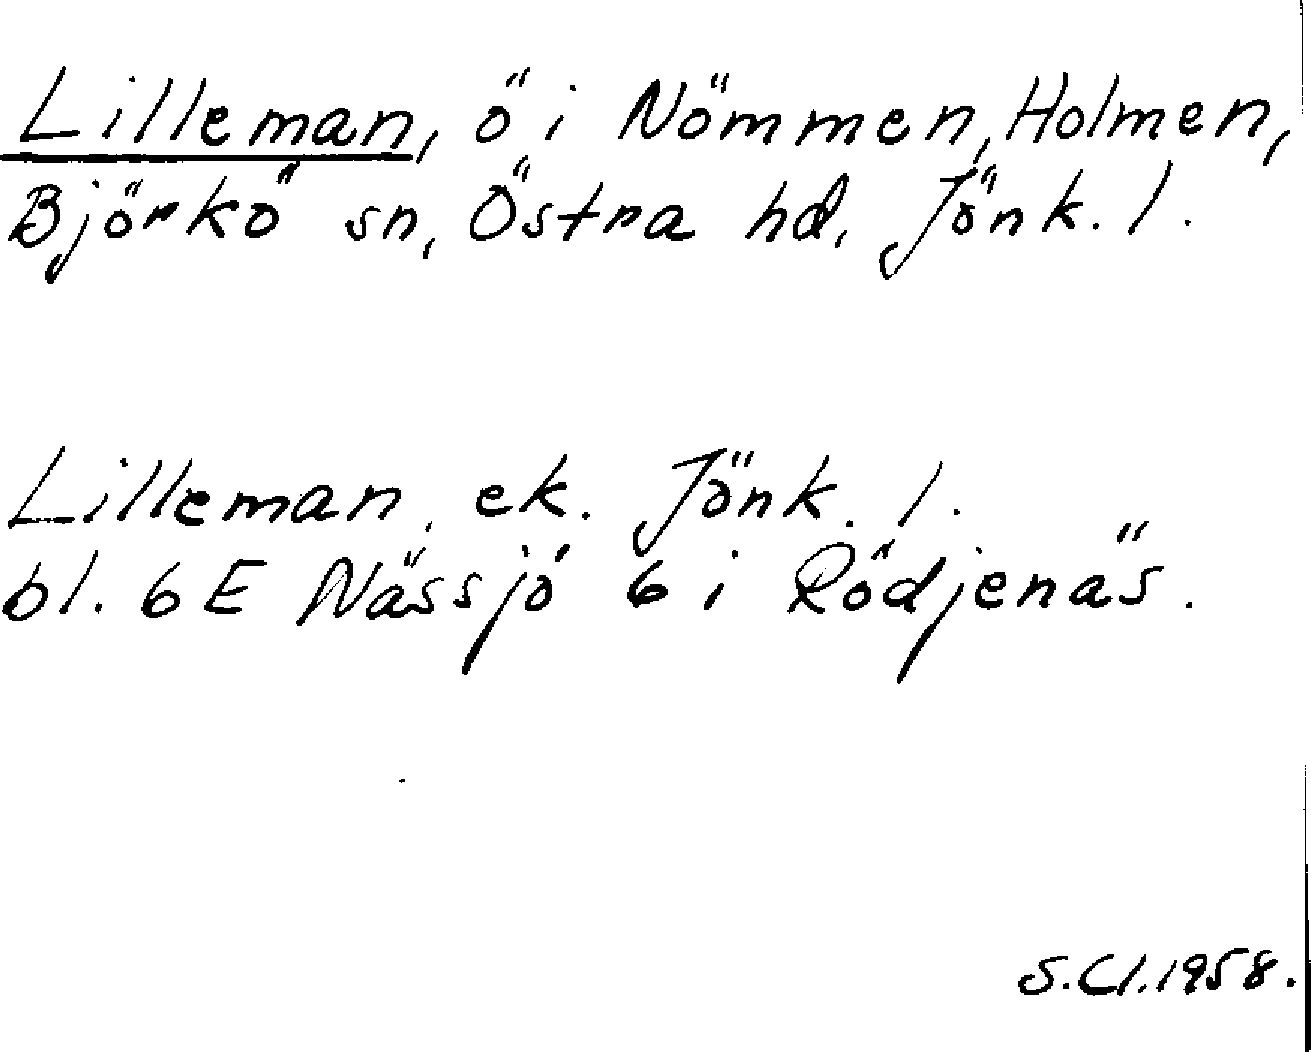 Lilleman, ö i Nömmen, Holmen,
Björkö sn, Östra hd, Jönk. l.
Lilleman, ek. Jönk. l.
bl. 6E Nässjö 6 i Rödjenäs.
S.Cl.1958.